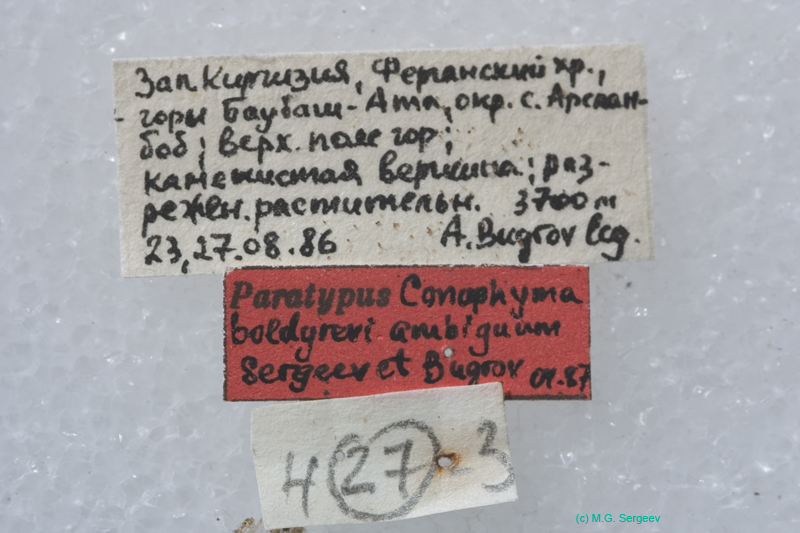 Зап. Киргизия, Ферганский хр.,
горы Баубаш-Ата, окр. с. Арслан-
боб; верх. пояс гор;
каменистая вершина; раз-
режен. растительн. 3700 m
23, 27.08.86 A. Bugrov leg.
Paratypus Conophyma
boldyrevi ambiguum
Sergeev et Bugrov 01.87
4 27-3
(c) M.G. Sergeev